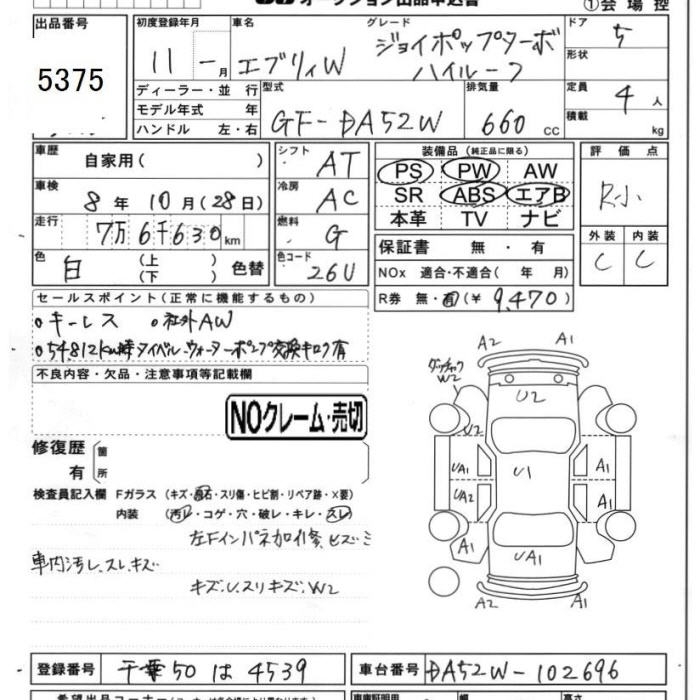 オークション出品申込書 ①会場控
出品番号 5375
初度登録年月 11 - 月
車名 エブリィW
グレード ジョイポップターボ
ハイルーフ
ドア 5
形状
ディーラー・並行
モデル年式 年
ハンドル 左・右
型式 GF-DA52W
排気量 660 CC
定員 4 人
積載 kg
車歴 自家用( )
車検 8年 10月(28日)
走行 7万6千630 km
色 白 (上下) 色替
シフト AT
冷房 AC
燃料 G
色コード 26U
装備品(純正品に限る)
PS PW AW
SR ABS エアB
本革 TV ナビ
評価点 R小
外装 内装
C C
保証書 無・有
NOx 適合・不適合( 年 月)
R券 無・有(¥ 9,470)
セールスポイント(正常に機能するもの)
○キーレス ○社外AW
○54,812km時タイベル・ウォーターポンプ交換キロク有
不良内容・欠品・注意事項等記載欄
NOクレーム・売切
修復歴 箇
有 所
検査員記入欄 Fガラス (キズ・飛石・スリ傷・ヒビ割・リペア跡・X要)
内装 (汚レ・コゲ・穴・破レ・キレ・スレ)
左Fインパネ加修
車内汚レ、スレ、キズ
キズ、U、スリキズ、W2
A2 A1
W2
U2
U2
UA1 U1 A1
UA2 A1
A1 UA1 A1
A2 A1
登録番号 千葉50は4539
車台番号 DA52W-102696